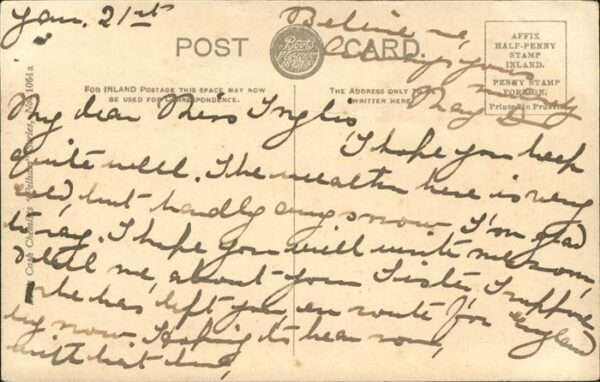 Jan. 21st
Believe me,
always yours
May
POST CARD.
Boots
AFFIX
HALF-PENNY
STAMP
INLAND.
PENNY STAMP
FOREIGN.
Printed in
FOR INLAND POSTAGE THIS SPACE MAY NOW
BE USED FOR CORRESPONDENCE.
THE ADDRESS ONLY TO
WRITTEN HERE
Cash Chemists "Pelham" Series, No. 1064a
My dear Miss Inglis
I hope you keep
quite well. The weather here is very
cold, but hardly any snow I'm glad
to say. I hope you will write me soon,
& tell me about your Sister, I suppose
she has left you, en route for England
by now. Hoping to hear soon,
with best love,